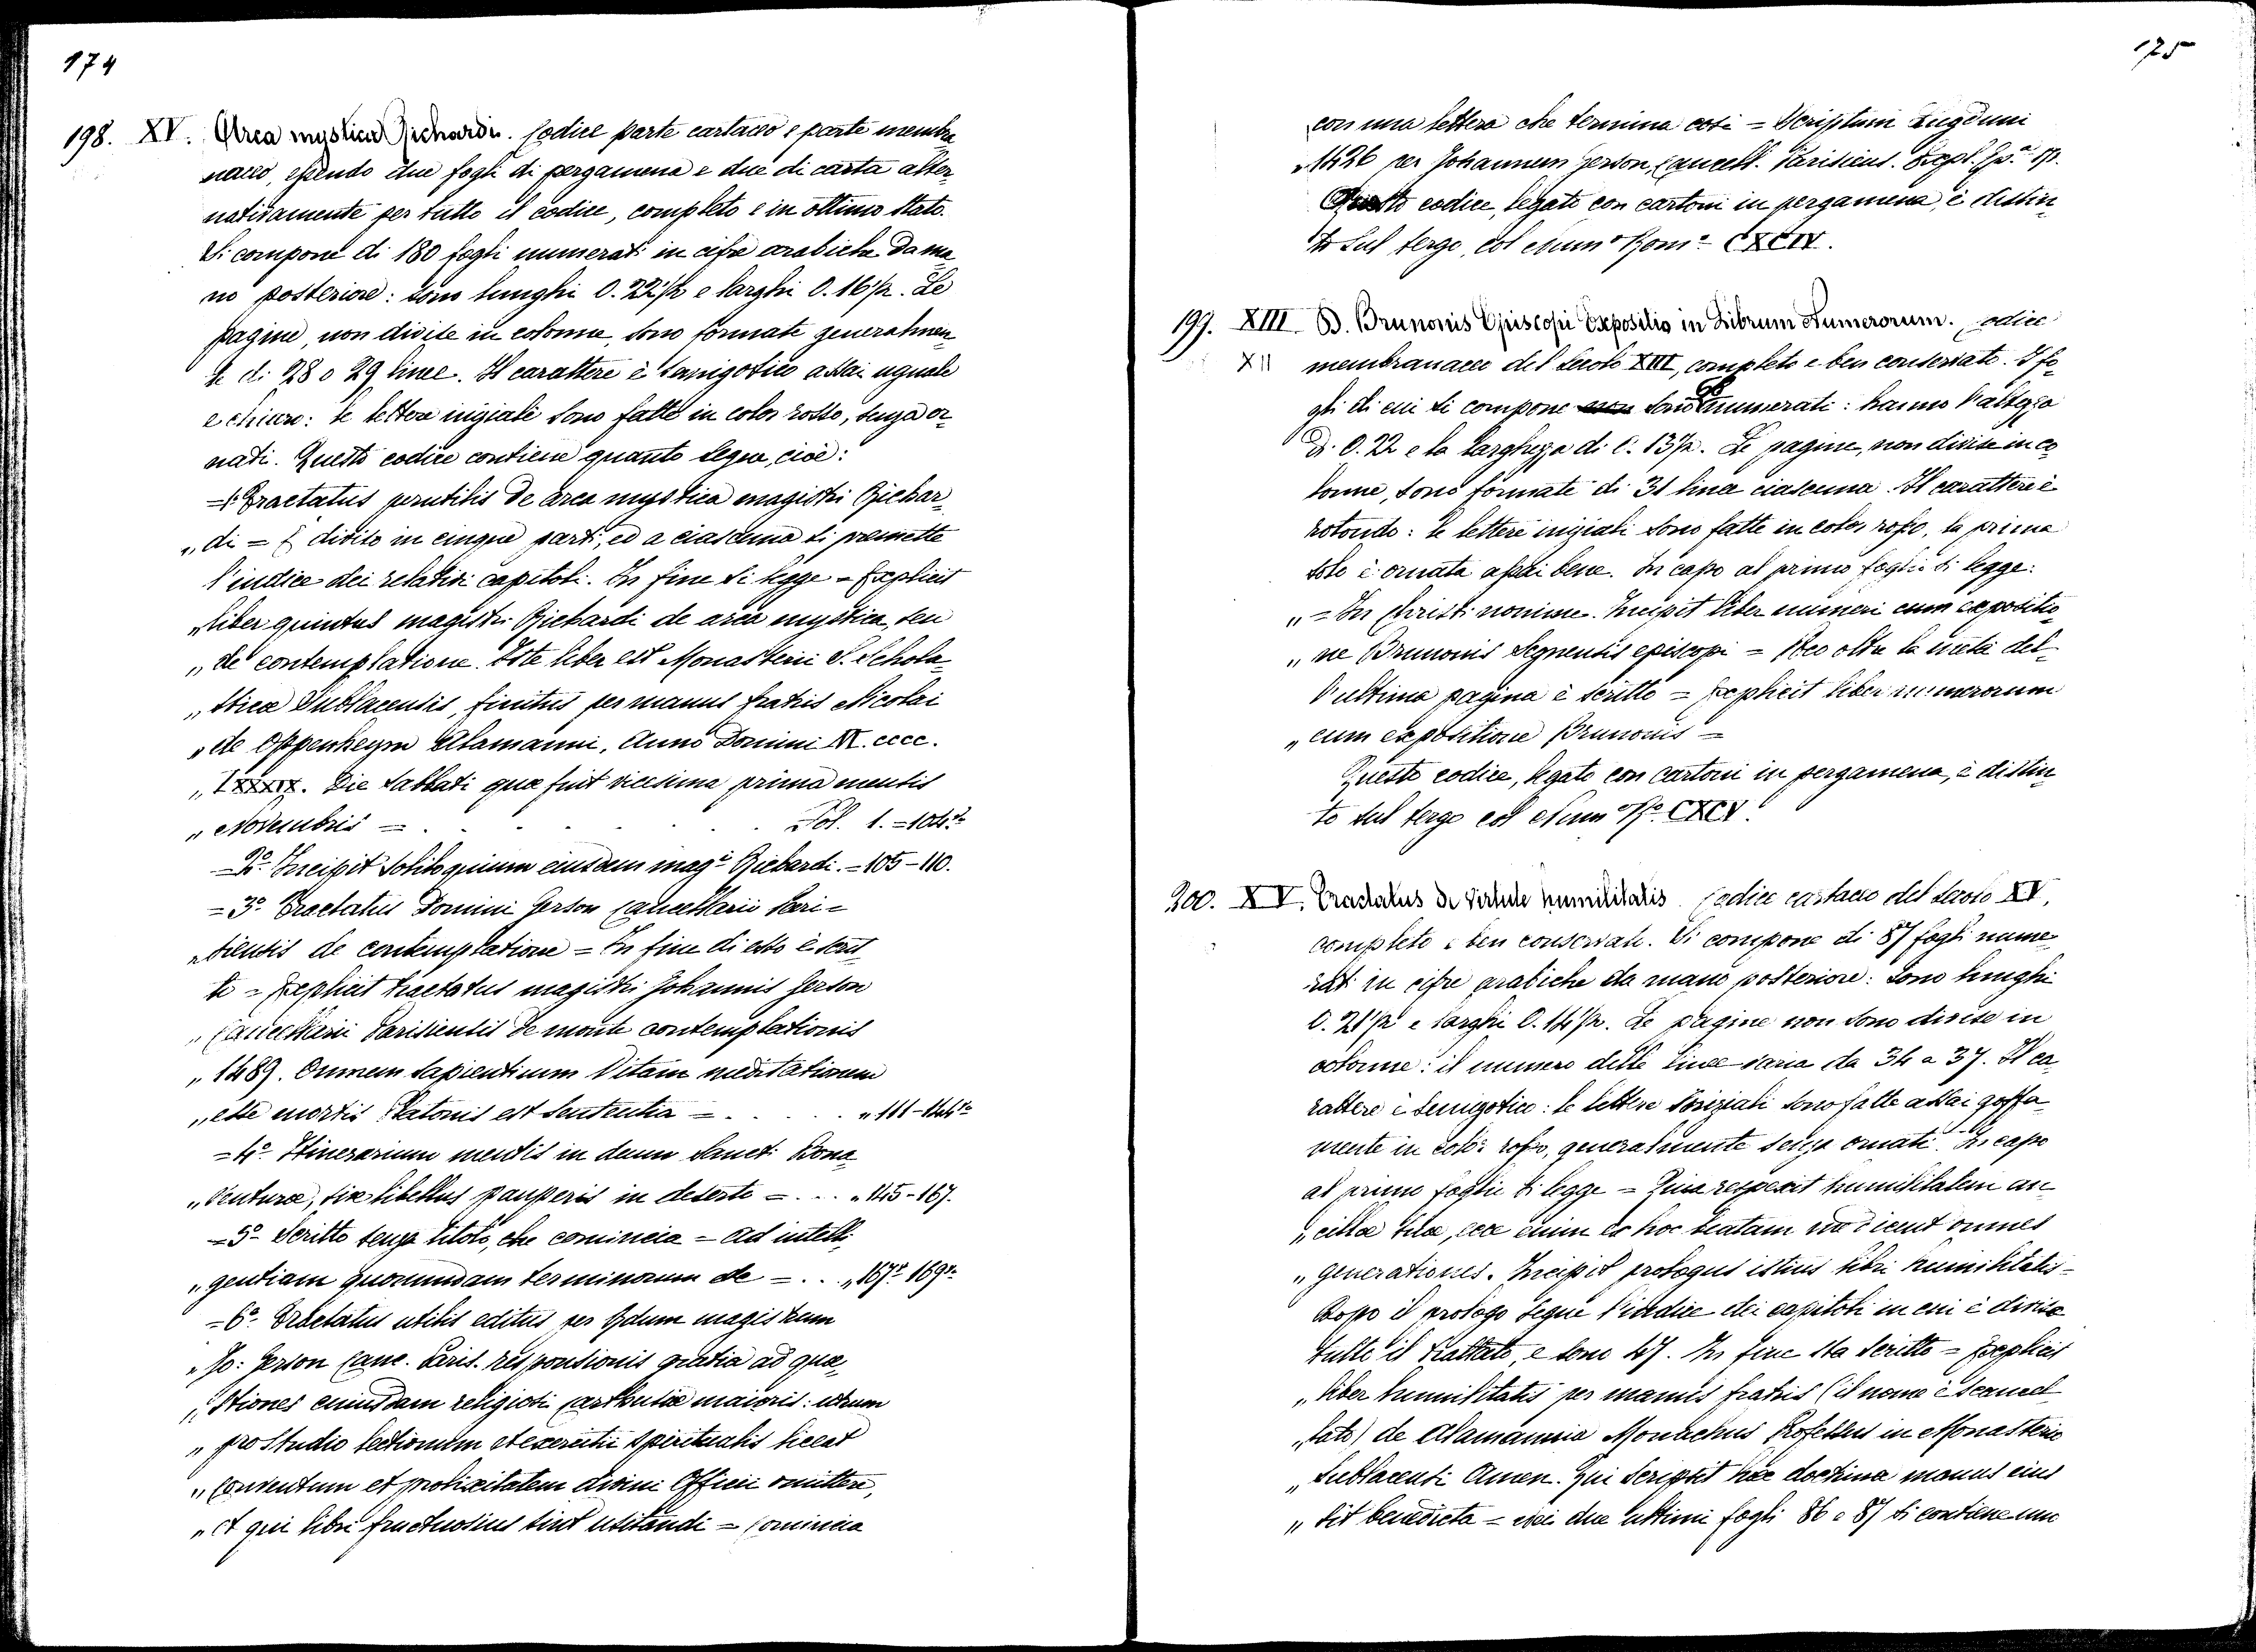 174
198. XV. Arca mystica Richardi. Codice parte cartaceo e parte membra
naceo, essendo due fogli di pergamena e due di carta alter
nativamente per tutto il codice, completo e in ottimo stato.
Si compone di 180 fogli numerati in cifre arabiche da ma
no posteriore: sono lunghi 0.22 1/2 e larghi 0.16 1/2. Le
pagine, non divise in colonne, sono formate generalmen
te di 28 o 29 linee. Il carattere è semigotico assai uguale
e chiaro: le lettere iniziali sono fatte in color rosso, senza or
nati. Questo codice contiene quanto segue, cioè:
=1º Tractatus perutilis de arca mystica magistri Richar
„ di = È diviso in cinque parti, ed a ciascuna si premette
l'indice dei relativi capitoli. In fine si legge = Explicit
„ liber quintus magistri Richardi de arca mystica, seu
„ de contemplatione. Iste liber est Monasterii S. Schola
„ sticæ Sublacensis, finitus per manus fratris Nicolai
„ de Oppenheym Alamanni, Anno Domini M.cccc.
„ LXXXIX. Die sabbati quæ fuit vicesima prima mensis
„ Novembris = . . . . . Fol. 1.=104.to
=2º Incipit soliloquium eiusdem magi Richardi.=105-110.
=3º Tractatus Domini Gerson Cancellarii Pari=
„ siensis de contemplatione = In fine di esso è scrit
to = Explicit tractatus magistri Johannis Gerson
„ Cancellarii Parisiensis de monte contemplationis
„ 1489. Omnem sapientium vitam meditationem
„ esse mortis Platonis est sententia = . . . . „ 111-144to
=4º Itinerarium mentis in deum sancti Bona
„ venturæ, sive libellus pauperis in deserto = . . . „ 145-167.
=5º Scritto senza titolo, che comincia = Ad intelli
„ gentiam quorumdam terminorum de = . . . „ 167to 169to
=6º Tractatus utilis editus per Gdum magistrum
„ Jo: Gerson Canc. Paris. responsionis gratia ad quæ
„ stiones cuiusdam religiosi Carthusiæ maioris: utrum
„ pro studio lectionum et exercitii spiritualis liceat
„ conventum et prolixitatem divini Officii omittere,
„ et qui libri fructuosius sint usitandi = Comincia
175
con una lettera che termina così = Scriptum Lugduni
„ 1426 per Johannem Gerson, Cancell. Parisiens.
Questo codice, legato con cartoni in pergamena, è distin
to sul tergo, col Numo Romo CXCIV.
199. XIII. B. Brunonis Episcopi Expositio in Librum Numerorum. Codice
XII membranaceo del secolo XIII, completo e ben conservato. I fo
gli di cui si compone non sono numerati: hanno l'altezza
di 0.22 e la larghezza di 0.13 1/2. Le pagine, non divise in co
lonne, sono formate di 31 linea ciascuna. Il carattere è
rotondo: le lettere iniziali sono fatte in color rosso, la prima
solo è ornata assai bene. In capo al primo foglio si legge:
„ = In Christi nomine. Incipit liber numeri cum expositio
„ ne Brunonis Segnensis episcopi = Poco oltre la metà del
l'ultima pagina è scritto = Explicit liber numerorum
„ cum expositione Brunonis =
Questo codice, legato con cartoni in pergamena, è distin
to sul tergo col Num Ro CXCV.
200. XV. Tractatus de virtute humilitatis. Codice cartaceo del secolo XV,
completo e ben conservato. Si compone di 87 fogli nume
rati in cifre arabiche da mano posteriore: sono lunghi
0.21 1/2 e larghi 0.14 1/2. Le pagine non sono divise in
colonne: il numero delle linee varia da 34 a 37. Il ca
rattere è semigotico: le lettere iniziali sono fatte assai goffa
mente in color rosso, generalmente senza ornati. In capo
al primo foglio si legge = Quia respexit humilitatem an
„ cillæ suæ, ecce enim ex hoc beatam me dicent omnes
„ generationes. Incipit prologus istius libri humilitatis =
Dopo il prologo segue l'indice dei capitoli in cui è diviso
tutto il trattato, e sono 47. In fine sta scritto = Explicit
„ liber humilitatis per manus fratris (il nome è scancel
„ lato) de Alamannia Monachus Professus in Monasterio
„ Sublacensi Amen. Qui scripsit hæc doctrina manus eius
„ sit benedicta = Nei due ultimi fogli 86 e 87 si contiene uno